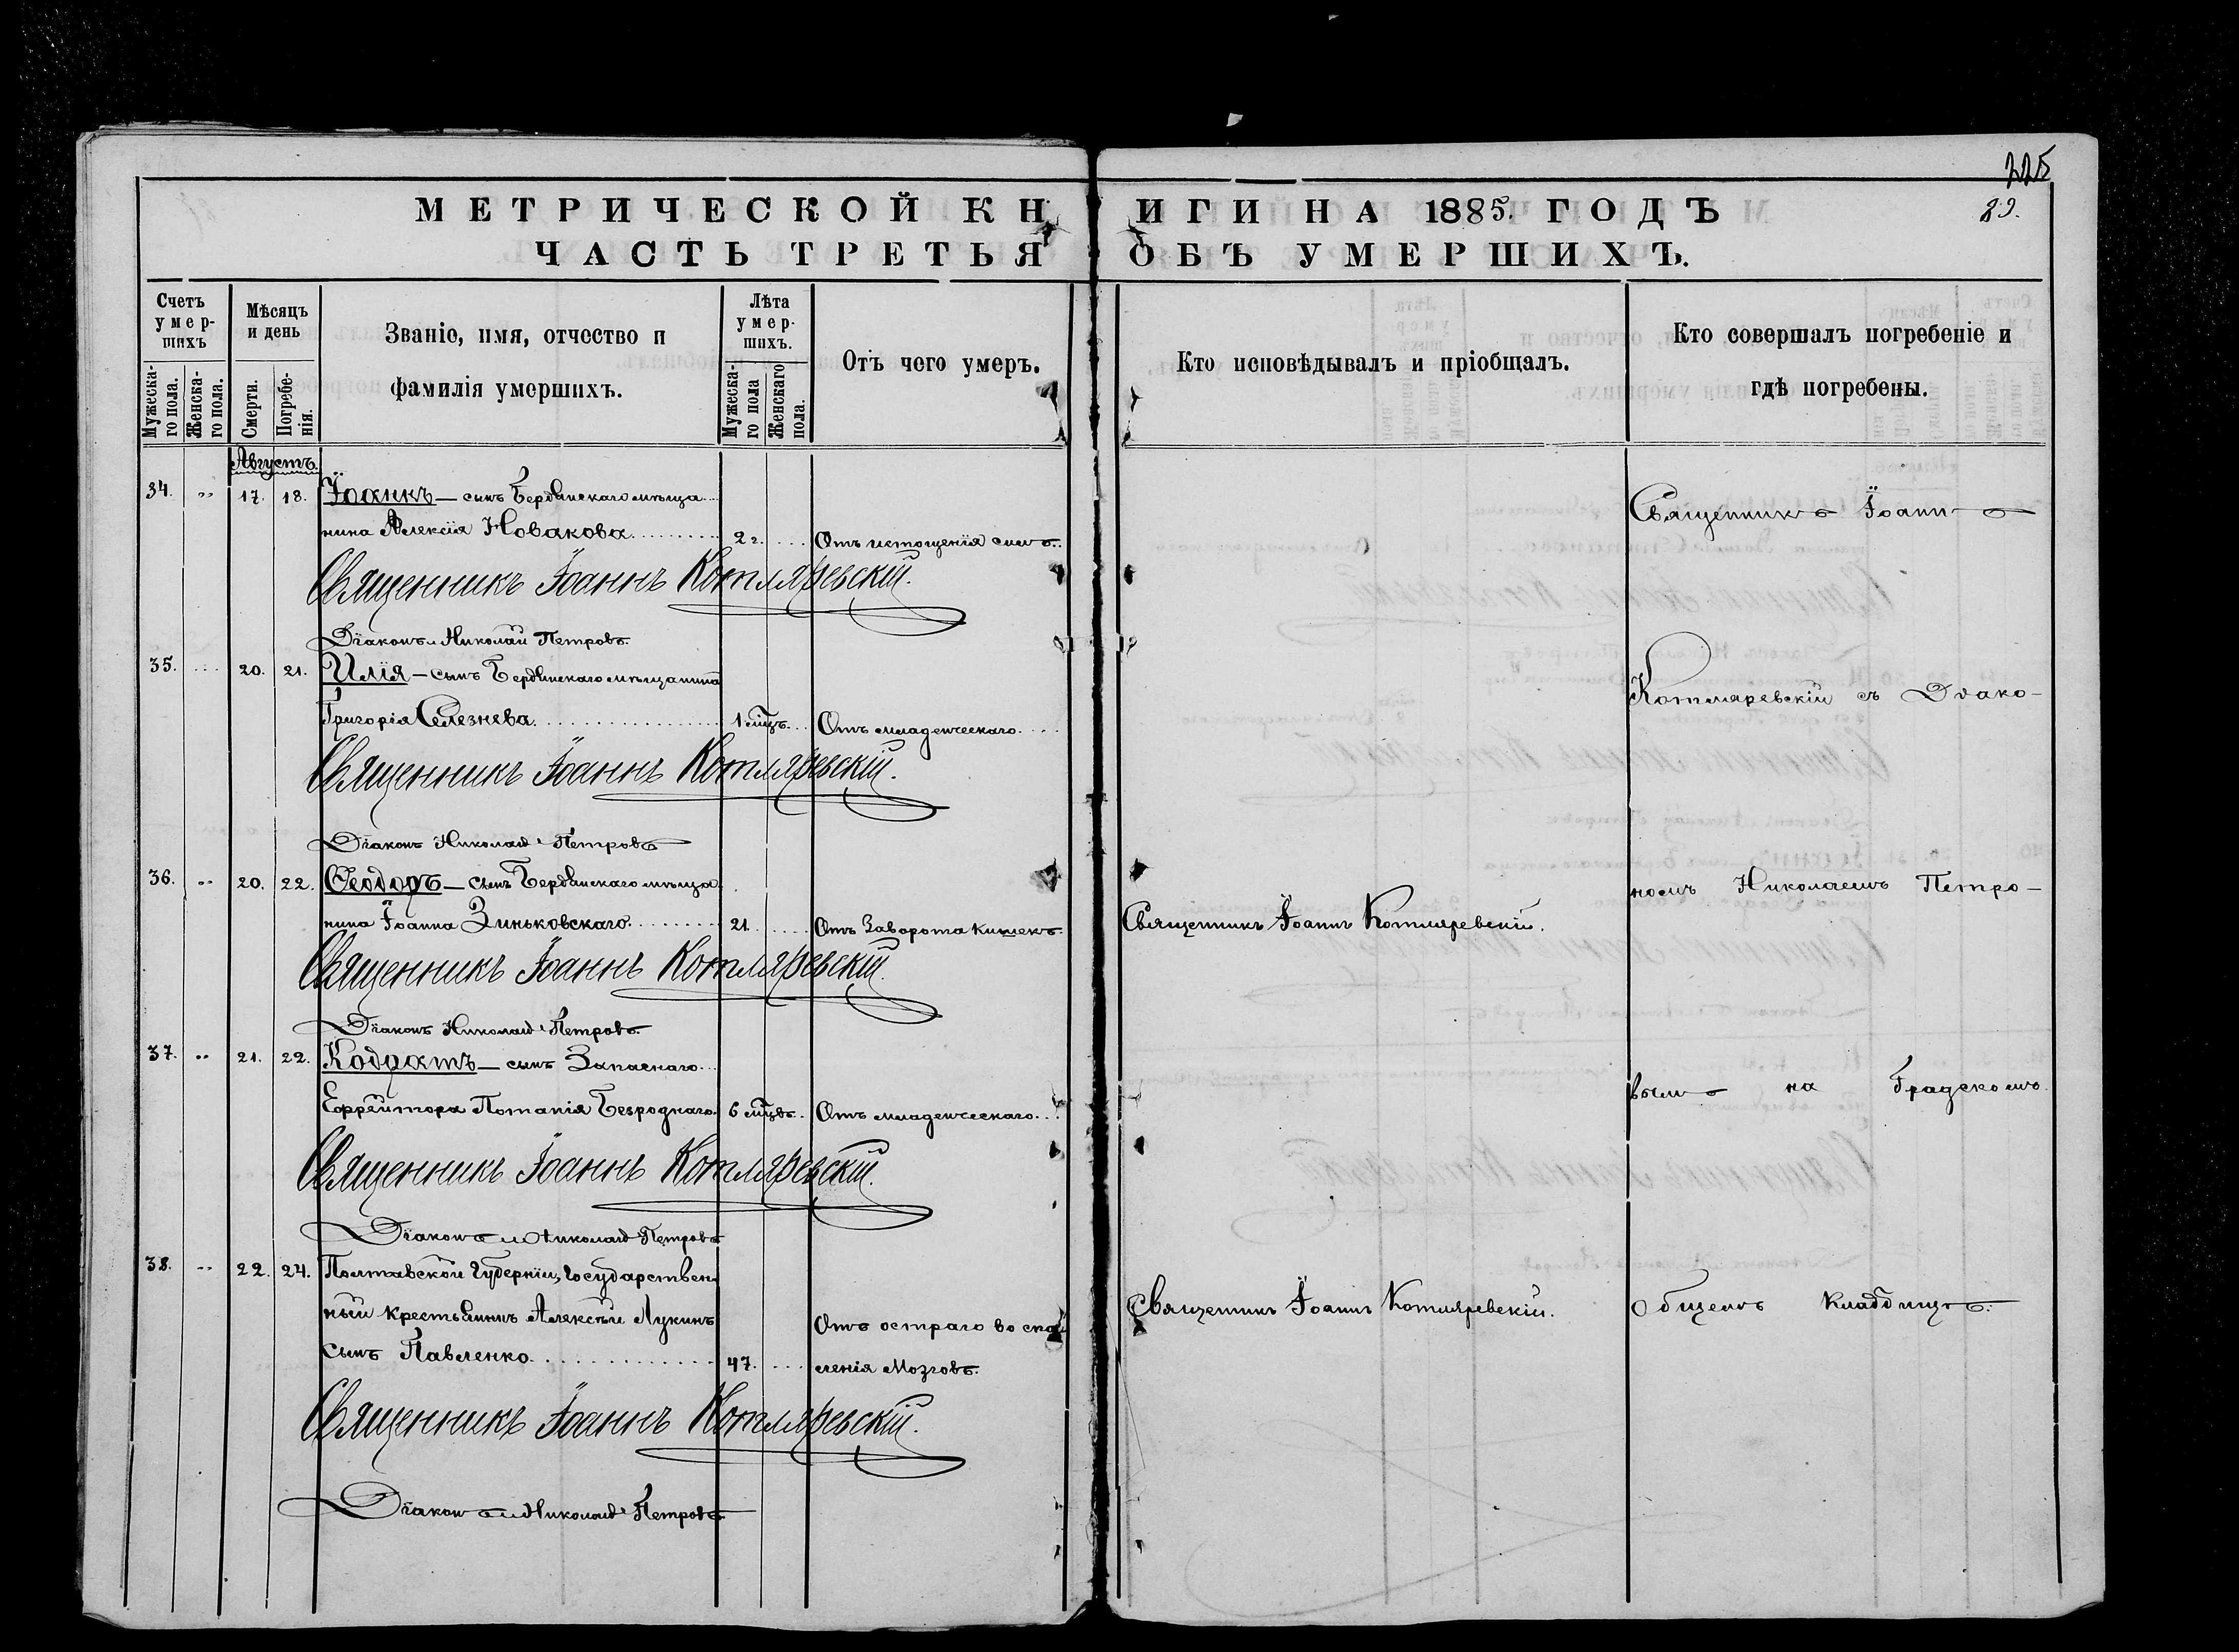 225
МЕТРИЧЕСКОЙ КНИГИ НА 1885 ГОДЪ
89.
ЧАСТЬ ТРЕТЬЯ ОБЪ УМЕРШИХЪ.
Счетъ умер-
шихъ
Мужеска-
го пола.
Женска-
го пола.
Мѣсяцъ
и день
Смерти.
Погребе-
нія.
Званіе, имя, отчество и
фамилія умершихъ.
Лѣта
умер-
шихъ.
Мужеска-
го пола
Женскаго
пола.
Отъ чего умеръ.
Кто исповѣдывалъ и пріобщалъ.
Кто совершалъ погребеніе и
гдѣ погребены.
Августъ.
34. „ 17. 18. Іоаннъ — сынъ Бердянскаго мѣща
нина Алексія Новакова. 2 г. Отъ истощенія силъ.
Священникъ Іоаннъ
Священникъ Іоаннъ Котляревскій.
Діаконъ Николай Петровъ.
35. 20. 21. Илія — сынъ Бердянскаго мѣщанина
Григорія Селезнева. 1 мцъ. Отъ младенческаго.
Котляревскій съ Діако-
Священникъ Іоаннъ Котляревскій.
Діаконъ Николай Петровъ
36. „ 20. 22. Ѳеодоръ — сынъ Бердянскаго мѣща
нина Іоанна Зиньковскаго. 21. Отъ Заворота Кишекъ. Священникъ Іоаннъ Котляревскій.
номъ Николаемъ Петро-
Священникъ Іоаннъ Котляревскій.
Діаконъ Николай Петровъ.
37. „ 21. 22. Кодратъ — сынъ Запаснаго
Ефрейтора Потапія Безроднаго. 6 мцвъ. Отъ младенческаго.
вымъ на Градскомъ
Священникъ Іоаннъ Котляревскій.
Діаконъ Николай Петровъ
38. „ 22. 24. Полтавской Губерніи, Государствен
ный крестьянинъ Алексѣй Лукинъ
сынъ Павленко. 47. Отъ остраго воспа
ленія Мозговъ.
Священникъ Іоаннъ Котляревскій.
Общемъ Кладбищѣ.
Священникъ Іоаннъ Котляревскій.
Діаконъ Николай Петровъ